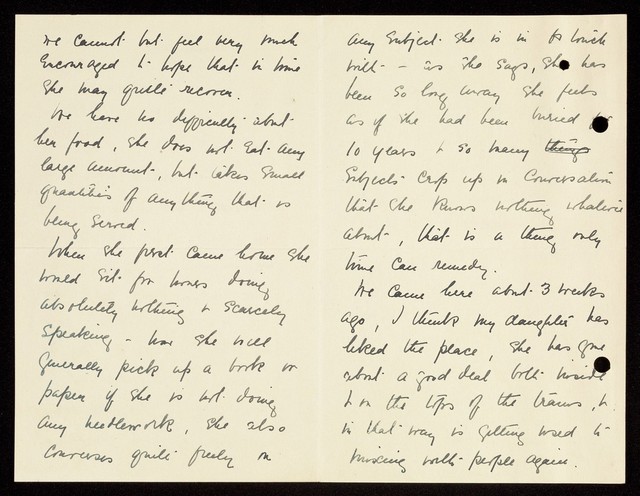 we cannot but feel very much
encouraged to hope that in time
she may quite recover.
We have no difficulty about
her food, she does not eat any
large amount, but takes small
quantities of anything that is
being served.
When she first came home she
would sit for hours doing
absolutely nothing & scarcely
speaking - now she will
generally pick up a book or
paper if she is not doing
any needlework, she also
converses quite freely on
any subject she is in touch
with - as she says, she has
been so long away she feels
as if she had been buried for
10 years & so many things
subjects crop up in conversation
that she knows nothing whatever
about, that is a thing only
time can remedy.
We came here about 3 weeks
ago, I think my daughter has
liked the place, she has gone
about a good deal both inside
& on the tops of the trams, &
in that way is getting used to
mixing with people again.